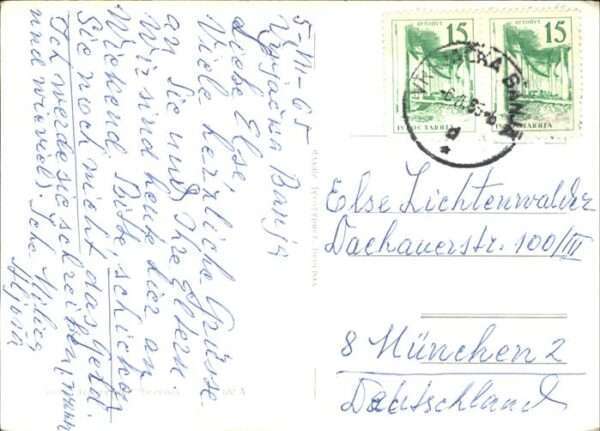 5-VII-65
Vrnjačka Banja
Liebe Else,
Viele herzliche Grüsse
an Sie und Ihre Eltern.
Wir sind heute hier am
Wickend. Bitte, schicken
Sie noch nicht das Geld.
Ich werde sie schreiben, wann
und wieviel. Ihre Milica
15
15
JUGOSLAVIJA
ЈУГОСЛАВИЈА
BANJA
Else Lichtenwalder
Dachauerstr. 100/III
8 München 2
Deutschland